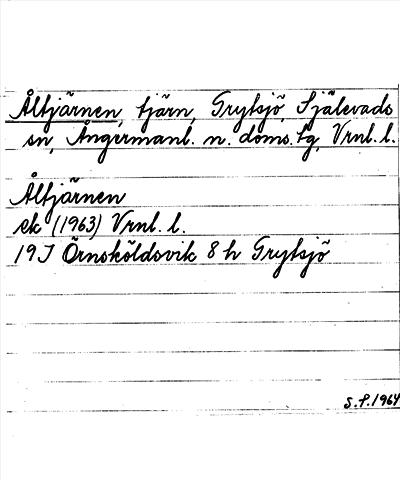 Åltjärnen, tjärn, Grytsjö, Själevads
sn, Ångermanl. n. doms. tg, Vrnl. l.
Åltjärnen
ek (1963) Vrnl. l.
19J Örnsköldsvik 8 h Grytsjö
S.P. 1964